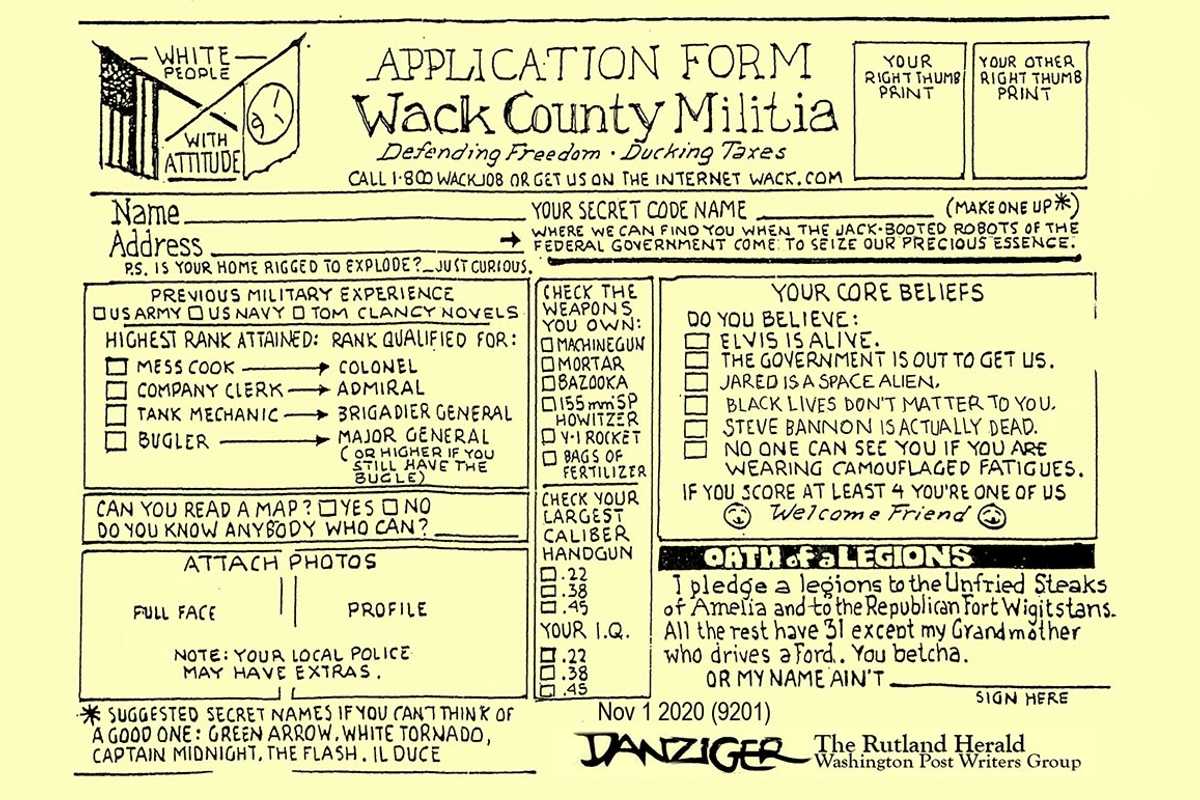 WHITE
PEOPLE
WITH
ATTITUDE
APPLICATION FORM
Wack County Militia
Defending Freedom · Ducking Taxes
CALL 1·800 WACKJOB OR GET US ON THE INTERNET WACK.COM
YOUR
RIGHT THUMB
PRINT
YOUR OTHER
RIGHT THUMB
PRINT
Name
YOUR SECRET CODE NAME (MAKE ONE UP*)
Address
WHERE WE CAN FIND YOU WHEN THE JACK-BOOTED ROBOTS OF THE
FEDERAL GOVERNMENT COME TO SEIZE OUR PRECIOUS ESSENCE.
P.S. IS YOUR HOME RIGGED TO EXPLODE?_JUST CURIOUS.
PREVIOUS MILITARY EXPERIENCE
US ARMY US NAVY TOM CLANCY NOVELS
HIGHEST RANK ATTAINED: RANK QUALIFIED FOR:
MESS COOK → COLONEL
COMPANY CLERK → ADMIRAL
TANK MECHANIC → BRIGADIER GENERAL
BUGLER → MAJOR GENERAL
(OR HIGHER IF YOU
STILL HAVE THE
BUGLE)
CAN YOU READ A MAP? YES NO
DO YOU KNOW ANYBODY WHO CAN?
ATTACH PHOTOS
FULL FACE
PROFILE
NOTE: YOUR LOCAL POLICE
MAY HAVE EXTRAS.
* SUGGESTED SECRET NAMES IF YOU CAN'T THINK OF
A GOOD ONE: GREEN ARROW, WHITE TORNADO,
CAPTAIN MIDNIGHT, THE FLASH. IL DUCE
CHECK THE
WEAPONS
YOU OWN:
MACHINEGUN
MORTAR
BAZOOKA
155 mm SP
HOWITZER
V-1 ROCKET
BAGS OF
FERTILIZER
CHECK YOUR
LARGEST
CALIBER
HANDGUN
.22
.38
.45
YOUR I.Q.
.22
.38
.45
YOUR CORE BELIEFS
DO YOU BELIEVE:
ELVIS IS ALIVE.
THE GOVERNMENT IS OUT TO GET US.
JARED IS A SPACE ALIEN.
BLACK LIVES DON'T MATTER TO YOU.
STEVE BANNON IS ACTUALLY DEAD.
NO ONE CAN SEE YOU IF YOU ARE
WEARING CAMOUFLAGED FATIGUES.
IF YOU SCORE AT LEAST 4 YOU'RE ONE OF US
Welcome Friend
OATH of a LEGIONS
I pledge a legions to the Unfried Steaks
of Amelia and to the Republican Fort Wigitstans.
All the rest have 31 except my Grandmother
who drives a Ford.. You betcha.
OR MY NAME AIN'T
SIGN HERE
Nov 1 2020 (9201)
DANZIGER
The Rutland Herald
Washington Post Writers Group